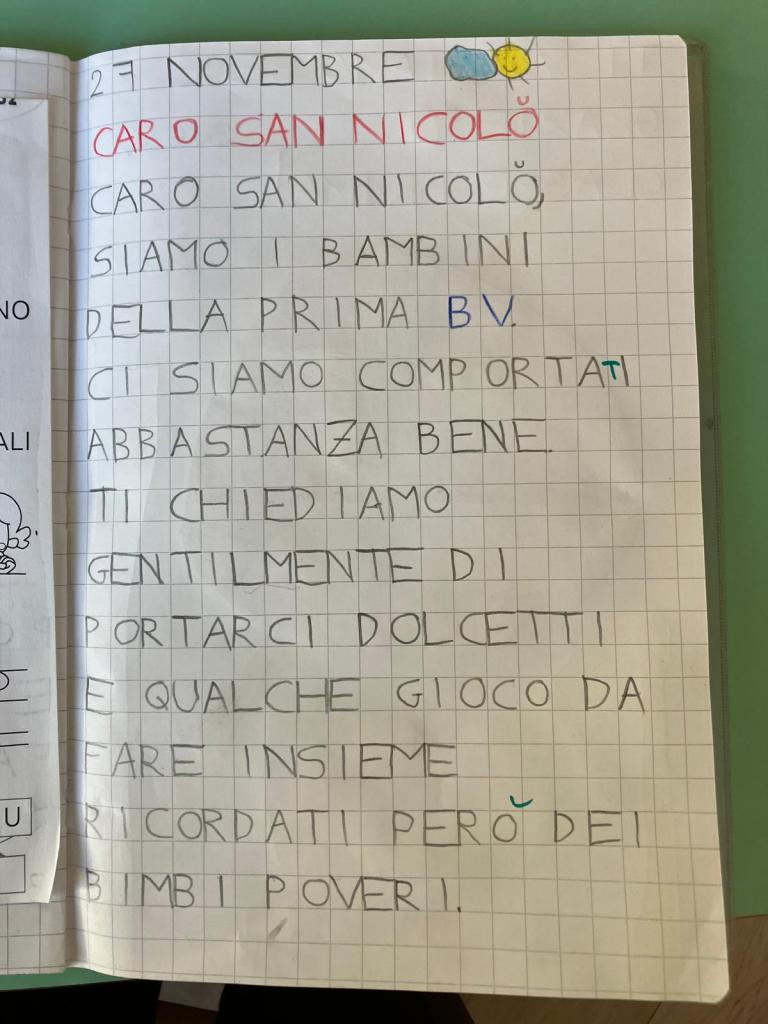 27 NOVEMBRE
CARO SAN NICOLŎ
CARO SAN NICOLŎ,
SIAMO I BAMBINI
DELLA PRIMA BV.
CI SIAMO COMPORTATI
ABBASTANZA BENE.
TI CHIEDIAMO
GENTILMENTE DI
PORTARCI DOLCETTI
E QUALCHE GIOCO DA
FARE INSIEME
RICORDATI PERŎ DEI
BIMBI POVERI.
NO
ALI
U